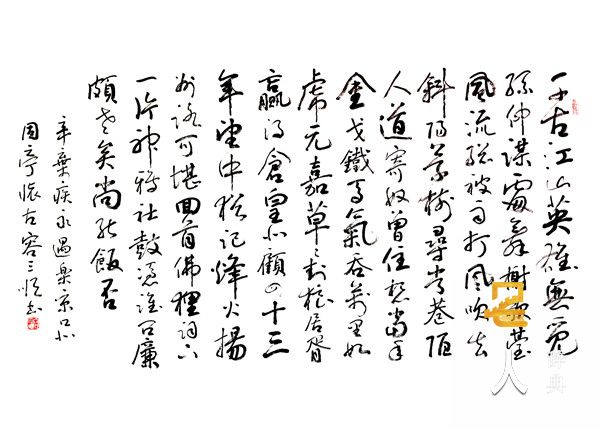 千古江山英雄無覓
孫仲謀處舞榭歌臺
風流總被雨打風吹去
斜陽草樹尋常巷陌
人道寄奴曾住想當年
金戈鐵馬氣吞萬里如
虎元嘉草〻封狼居胥
贏得倉皇北顧四十三
年望中猶記烽火揚
州路可堪回首佛狸祠下
一片神鴉社鼓憑誰問廉
頗老矣尚能飯否
辛棄疾永遇樂京口北
固亭懷古